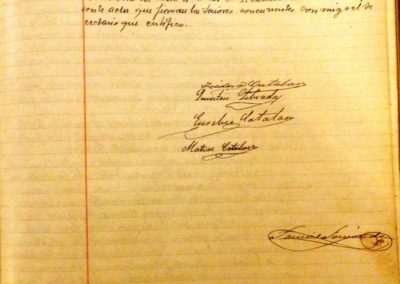 sente acta que firman los Señores concurrentes conmigo el Se
cretario que certifico.
Isidro Catalan
Quintin Tibrada
Eusebio Catalan
Matias Catalan